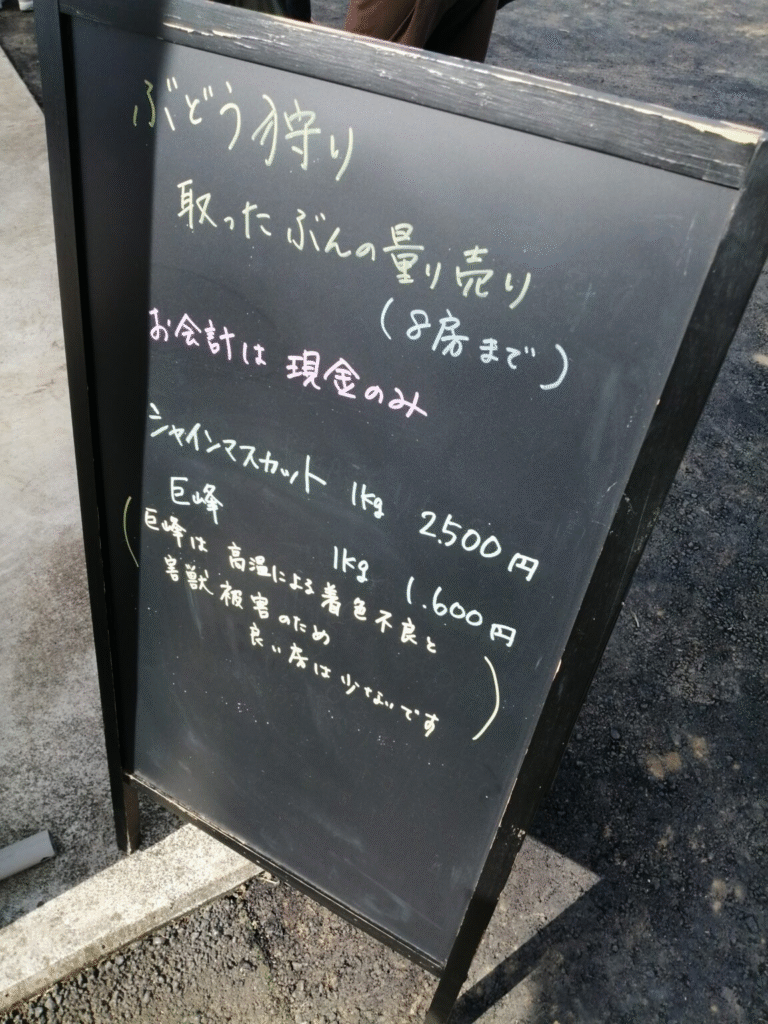 ぶどう狩り
取ったぶんの量り売り
(8房まで)
お会計は 現金のみ
シャインマスカット 1kg 2.500円
巨峰 1kg 1.600円
(巨峰は 高温による着色不良と
害獣被害のため
良い房は少ないです)